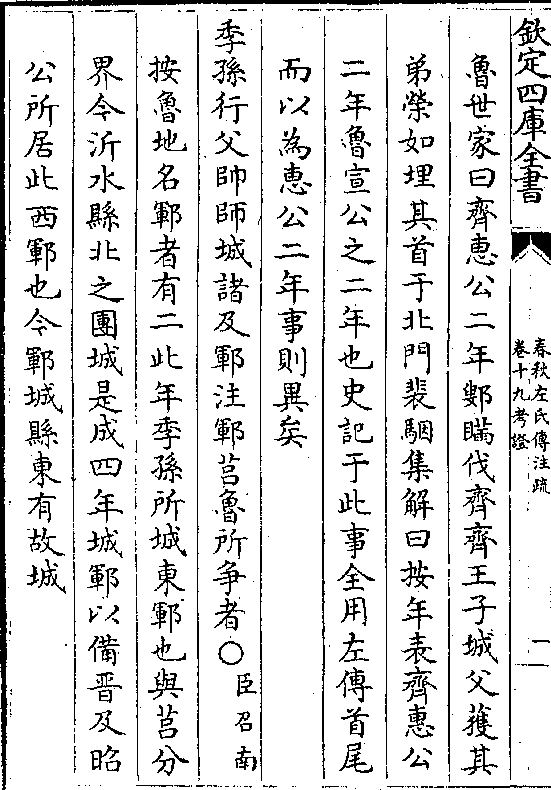 欽定四庫全書
春秋左氏傳注疏
卷十九考證
一
魯世家曰齊惠公二年鄋瞞伐齊齊王子城父獲其
弟榮如埋其首于北門裴駰集解曰按年表齊惠公
二年魯宣公之二年也史記于此事全用左傳首尾
而以為惠公二年事則異矣
季孫行父帥師城諸及鄆注鄆莒魯所爭者○臣召南
按魯地名鄆者有二此年季孫所城東鄆也與莒分
界今沂水縣北之團城是成四年城鄆以備晉及昭
公所居此西鄆也今鄆城縣東有故城